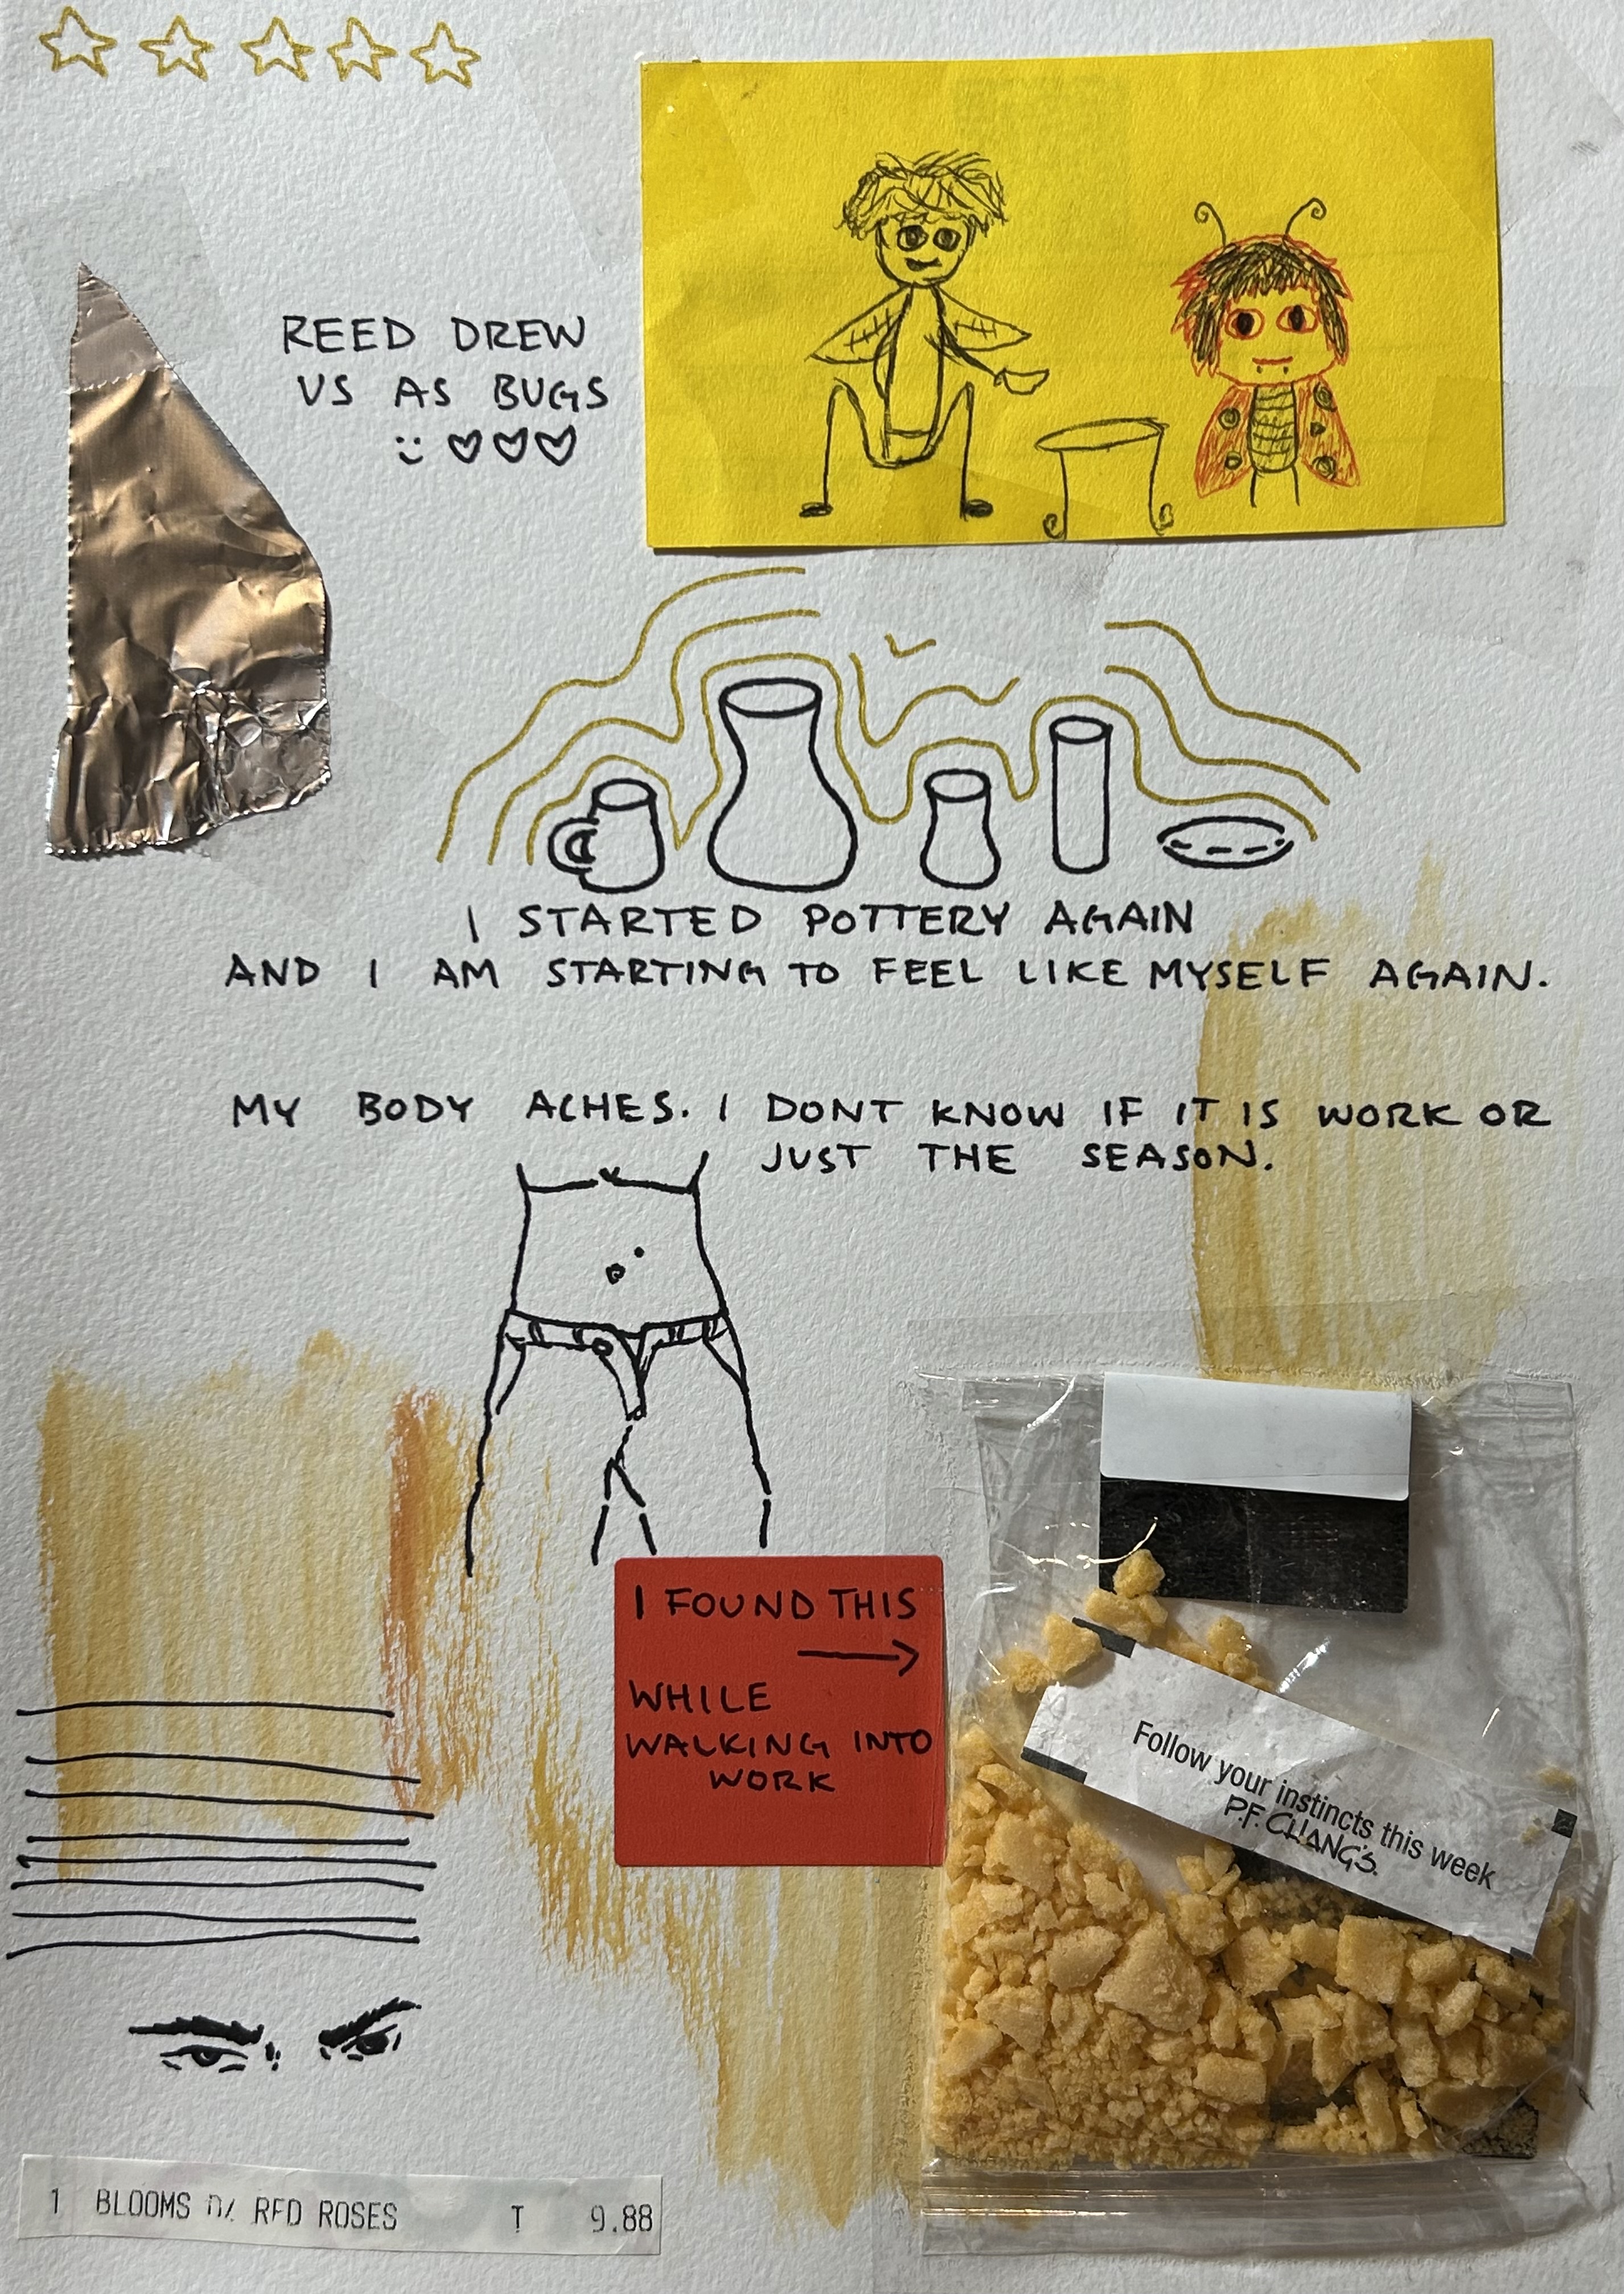 REED DREW
US AS BUGS
I STARTED POTTERY AGAIN
AND I AM STARTING TO FEEL LIKE MYSELF AGAIN.
MY BODY ACHES. I DONT KNOW IF IT IS WORK OR
JUST THE SEASON.
I FOUND THIS
WHILE
WALKING INTO
WORK
Follow your instincts this week
P.F. CHANG'S.
1 BLOOMS RED ROSES T 9.88